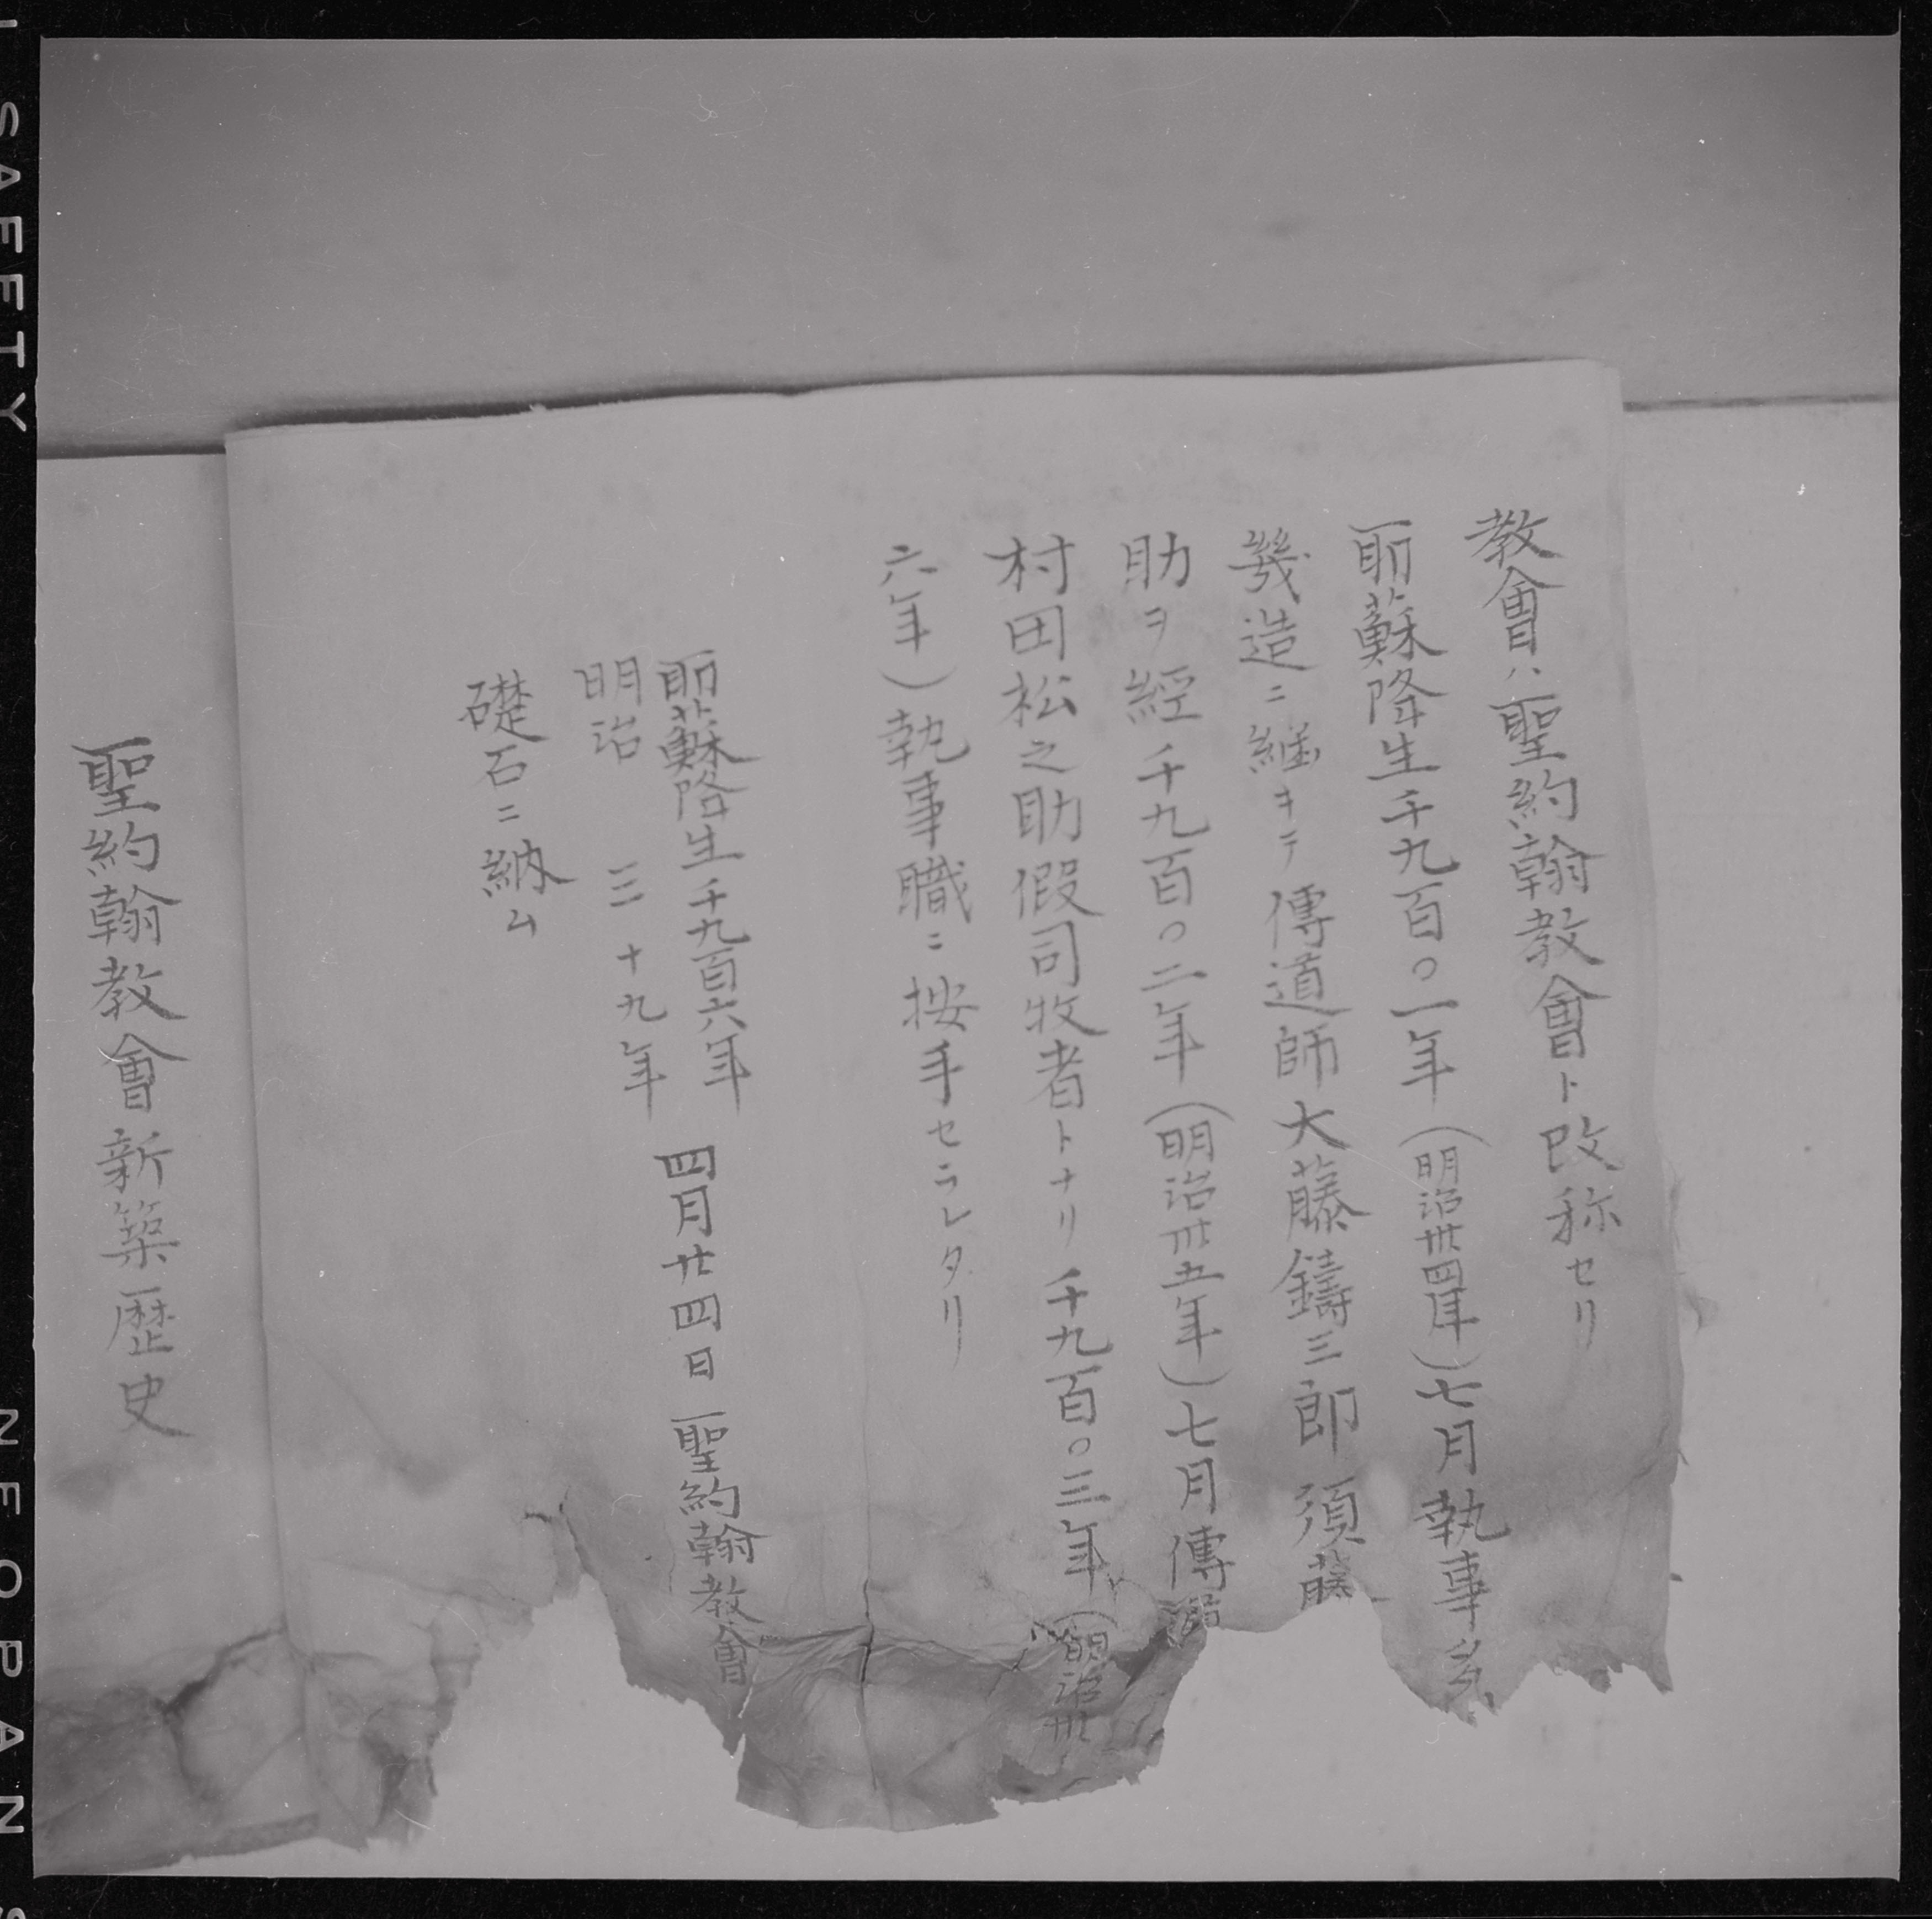 教會ハ聖約翰教會ト改称セリ
耶蘇降生千九百〇一年(明治卅四年)七月執事多
幾造ニ継キテ傳道師大藤鑄三郎須藤
助ヲ經千九百〇二年(明治卅五年)七月傳道
村田松之助假司牧者トナリ千九百〇三年(明治卅
六年)執事職ニ按手セラレタリ
耶蘇降生千九百六年
明治三十九年
四月廿四日聖約翰教會
礎石ニ納ム
聖約翰教會新築歴史
SAFETY
NEOPAN